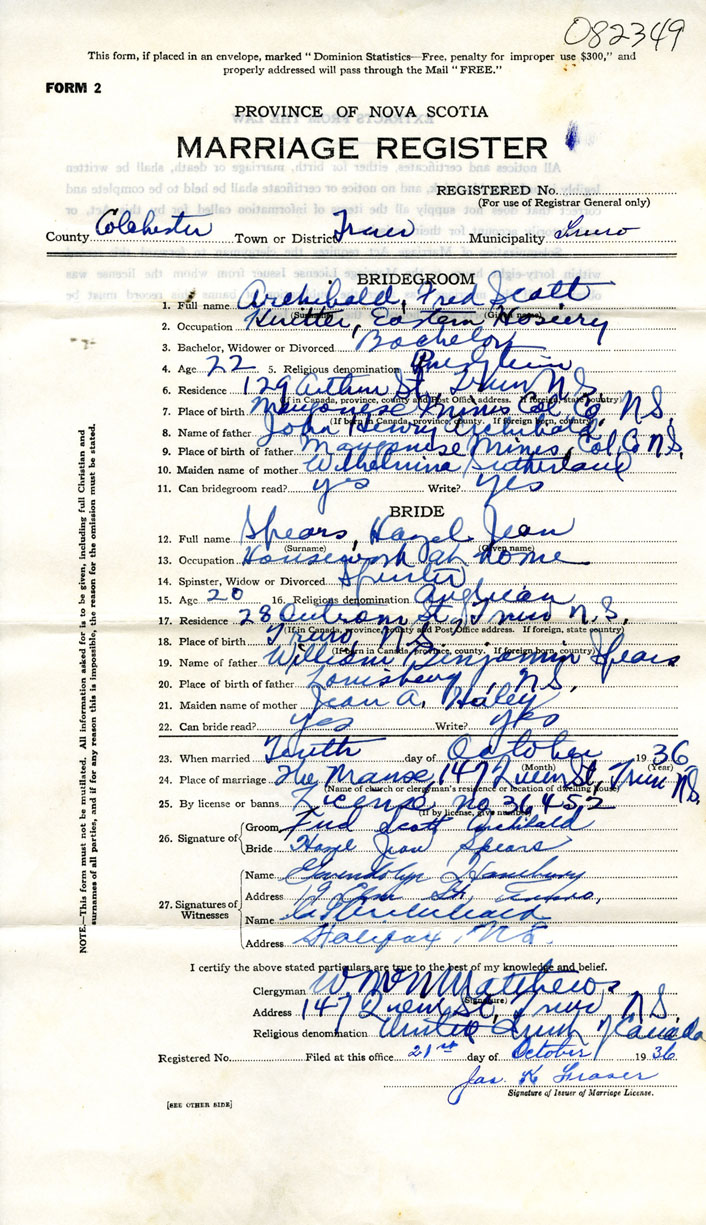 082349
This form, if placed in an envelope, marked "Dominion Statistics—Free, penalty for improper use $300," and
properly addressed will pass through the Mail "FREE."
FORM 2
PROVINCE OF NOVA SCOTIA
MARRIAGE REGISTER
REGISTERED No.
(For use of Registrar General only)
County Colchester Town or District Truro Municipality Truro
BRIDEGROOM
1. Full name Archibald, Fred Scott
(Surname) (Given name)
2. Occupation Knitter, Eastern Hosiery
3. Bachelor, Widower or Divorced Bachelor
4. Age 22 5. Religious denomination
6. Residence 129 Arthur St, Truro N.S.
(If in Canada, province, county and Post Office address. If foreign, state country)
7. Place of birth Mines Col. Co, N.S.
(If born in Canada, province, county. If foreign born, country)
8. Name of father John Henry Archibald
9. Place of birth of father Mines, Col. Co N.S.
10. Maiden name of mother Wilhelmina Sutherland
11. Can bridegroom read? yes Write? yes
BRIDE
12. Full name Spears, Hazel Jean
(Surname) (Given name)
13. Occupation Housework at home
14. Spinster, Widow or Divorced Spinster
15. Age 20 16. Religious denomination Anglican
17. Residence 28 Outram St, Truro N.S.
(If in Canada, province, county and Post Office address. If foreign, state country)
18. Place of birth Truro, N.S.
(If born in Canada, province, county. If foreign born, country)
19. Name of father William Benjamin Spears
20. Place of birth of father Louisburg, N.S.
21. Maiden name of mother Jean A. Haley
22. Can bride read? yes Write? yes
23. When married Tenth day of October 1936
(Month) (Year)
24. Place of marriage The Manse, 147 Queen St, Truro N.S.
(Name of church or clergyman's residence or location of dwelling house)
25. By license or banns License, no 36452
(If by license, give number)
26. Signature of Groom Fred Scott Archibald
Bride Hazel Jean Spears
27. Signatures of Witnesses
Name Gwendolyn
Address 19 Elm St, Truro,
Name Archibald
Address Halifax, N.S.
I certify the above stated particulars are true to the best of my knowledge and belief.
Clergyman Matthews
(Signature)
Address 147 Queen St, Truro N.S.
Religious denomination United Church of Canada
Registered No. Filed at this office 21st day of October 1936
Jas. K Fraser
Signature of Issuer of Marriage License.
[SEE OTHER SIDE]
NOTE.—This form must not be mutilated. All information asked for is to be given, including full Christian and
surnames of all parties, and if for any reason this is impossible, the reason for the omission must be stated.